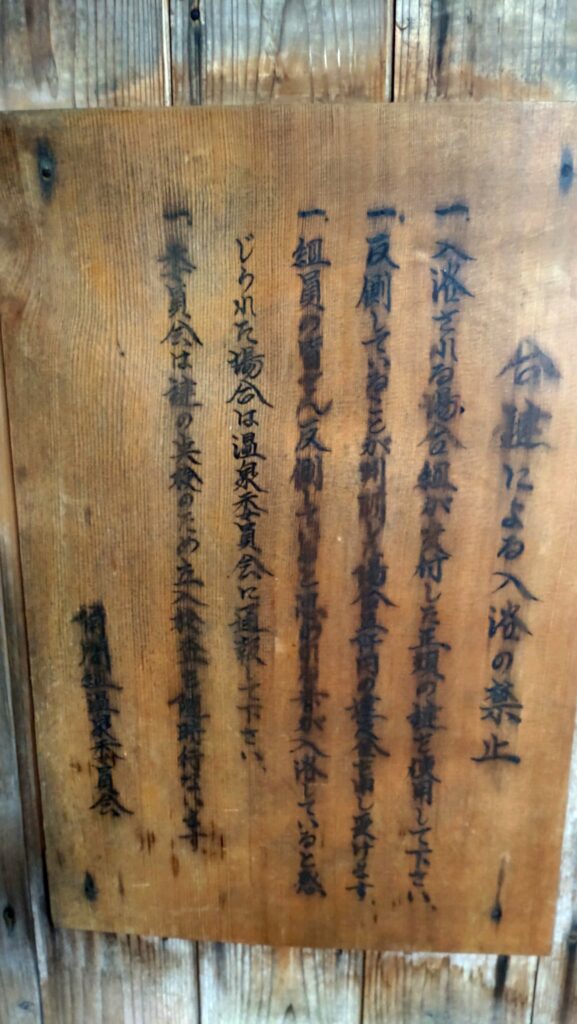 合鍵による入浴の禁止
一、入浴される場合組が交付した正規の鍵を使用して下さい、
一、反側していることが判明した場合 円の 金を申し受けます、
一、組員の皆さん反側している 入浴していると感
じられた場合は温泉委員会に通報して下さい、
一、委員会は鍵の点検のため立入検査を随時行ないます
温泉委員会